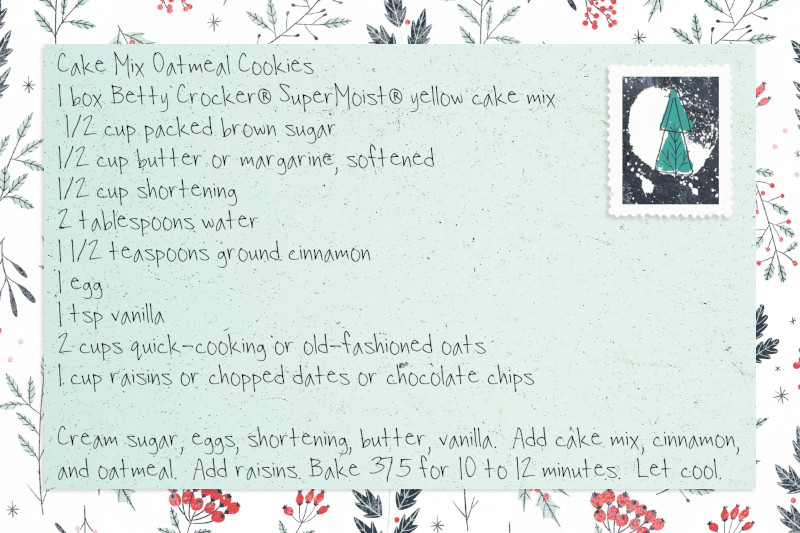 Cake Mix Oatmeal Cookies
1 box Betty Crocker® SuperMoist® yellow cake mix
1/2 cup packed brown sugar
1/2 cup butter or margarine, softened
1/2 cup shortening
2 tablespoons water
1 1/2 teaspoons ground cinnamon
1 egg
1 tsp vanilla
2 cups quick-cooking or old-fashioned oats
1 cup raisins or chopped dates or chocolate chips
Cream sugar, eggs, shortening, butter, vanilla. Add cake mix, cinnamon,
and oatmeal. Add raisins. Bake 375 for 10 to 12 minutes. Let cool.